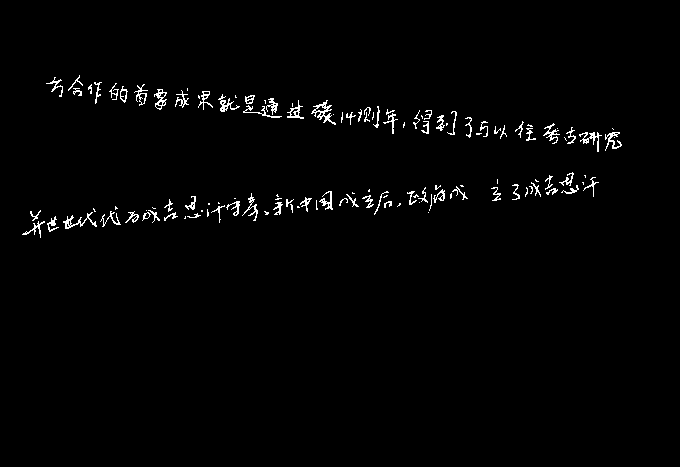 方合作的首要成果就是通过碳14测年,得到了与以往考古研究
并世世代代为成吉思汗守孝。新中国成立后,政府成立了成吉思汗